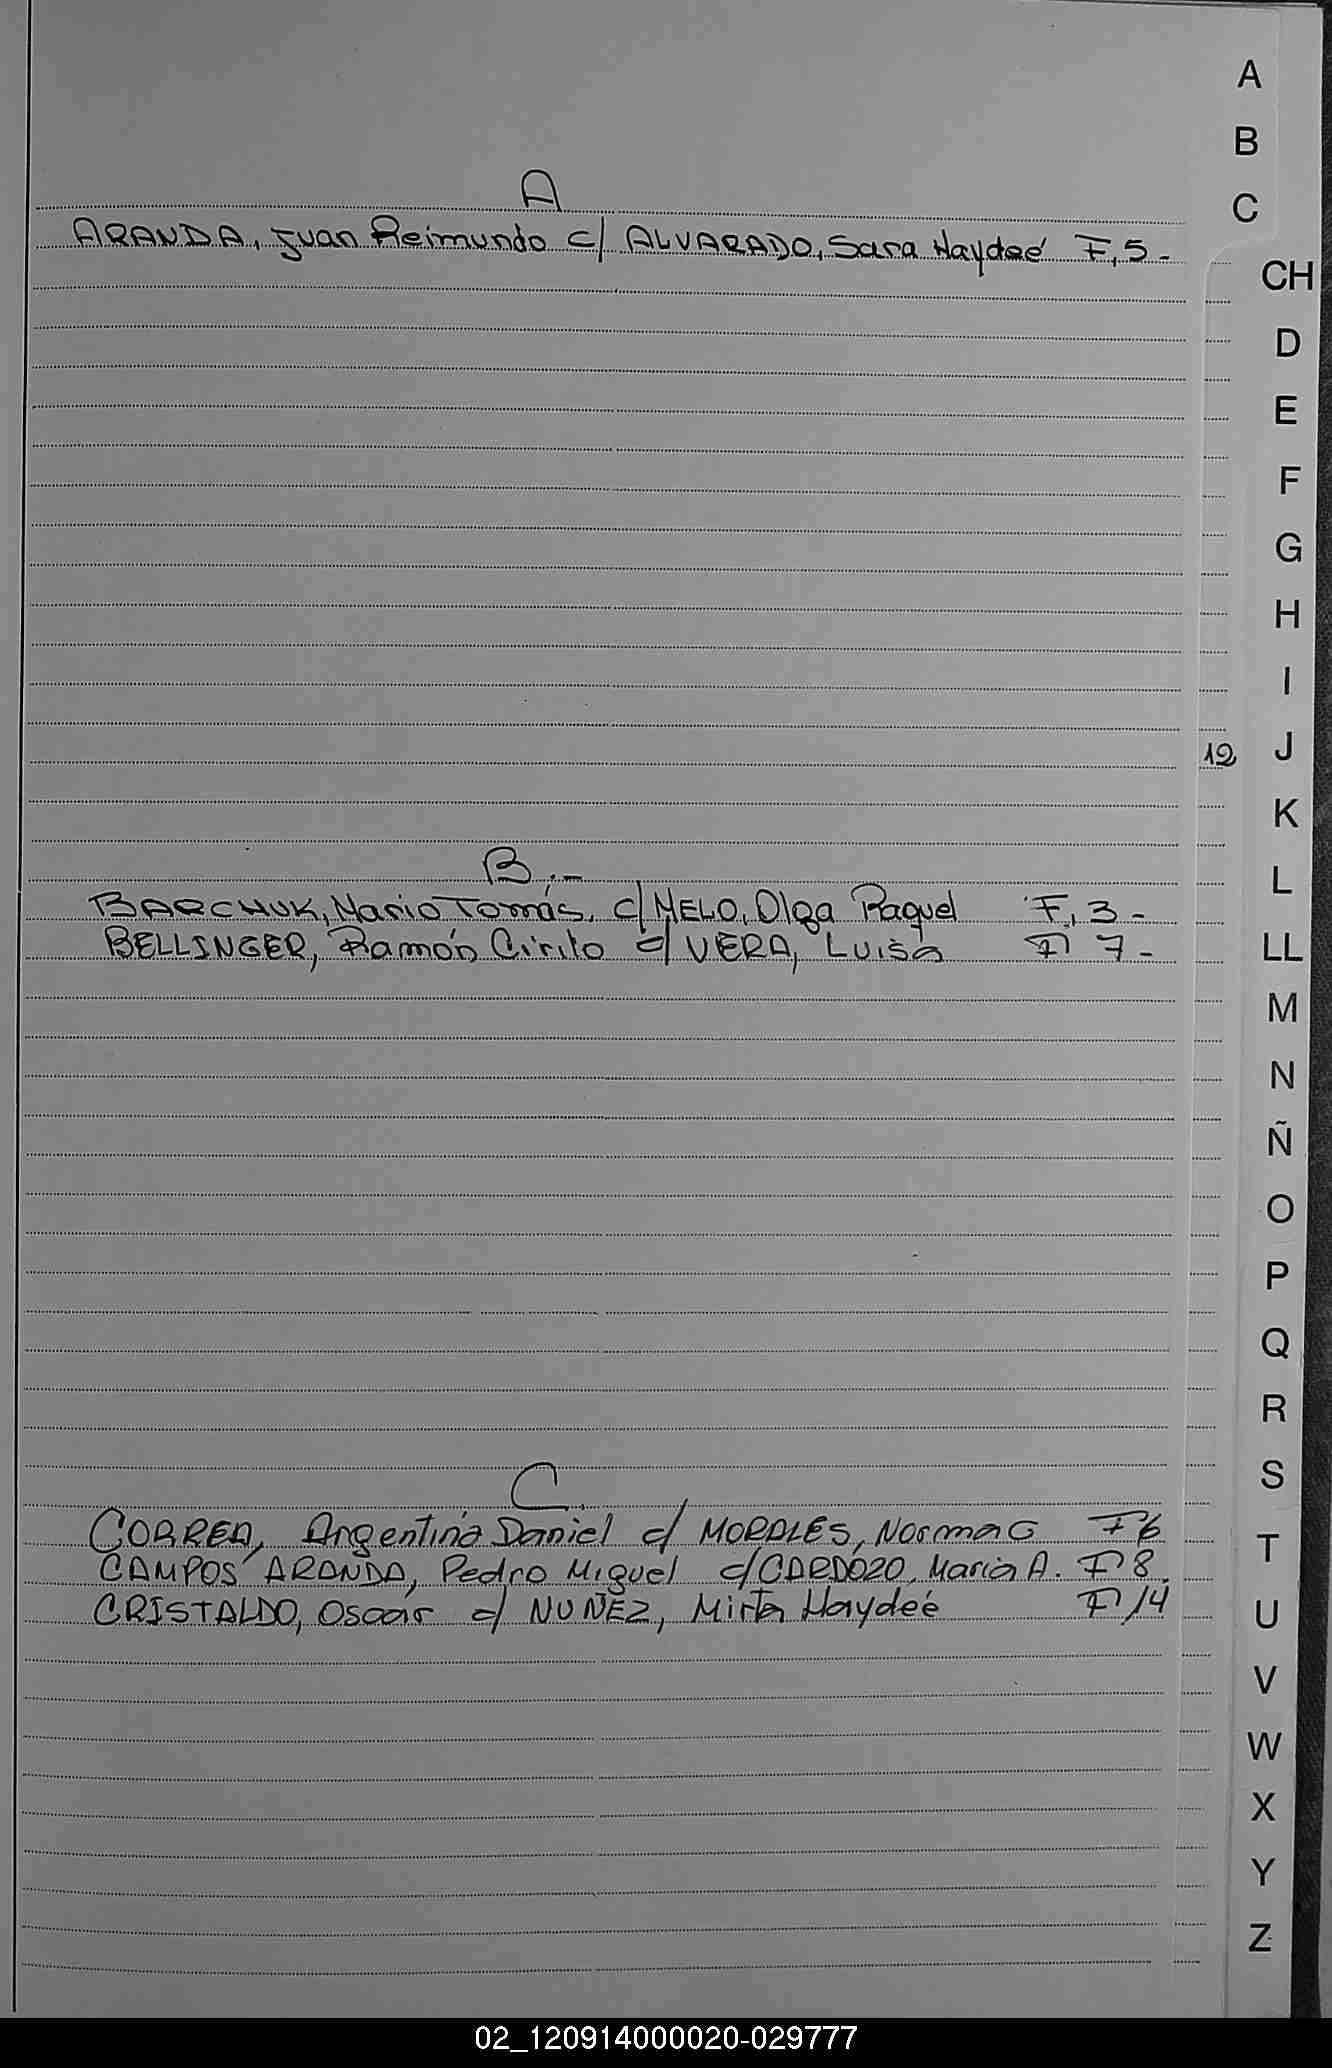 A
ARANDA, Juan Reimundo c/ ALVARADO, Sara Haydeé F, 5-
B.-
BARCHUK, Mario Tomás, c/ MELO, Olga Raquel F, 3-
BELLINGER, Ramón Cirilo c/ VERA, Luisa F 7-
C.
CORREA, Argentino Daniel c/ MORALES, Norma G F 6
CAMPOS ARANDA, Pedro Miguel c/ CARDOZO, Maria A. F 8.
CRISTALDO, Oscar c/ NUÑEZ, Mirta Haydeé F 14
12
A
B
C
CH
D
E
F
G
H
I
J
K
L
LL
M
N
Ñ
O
P
Q
R
S
T
U
V
W
X
Y
Z
02_120914000020-029777